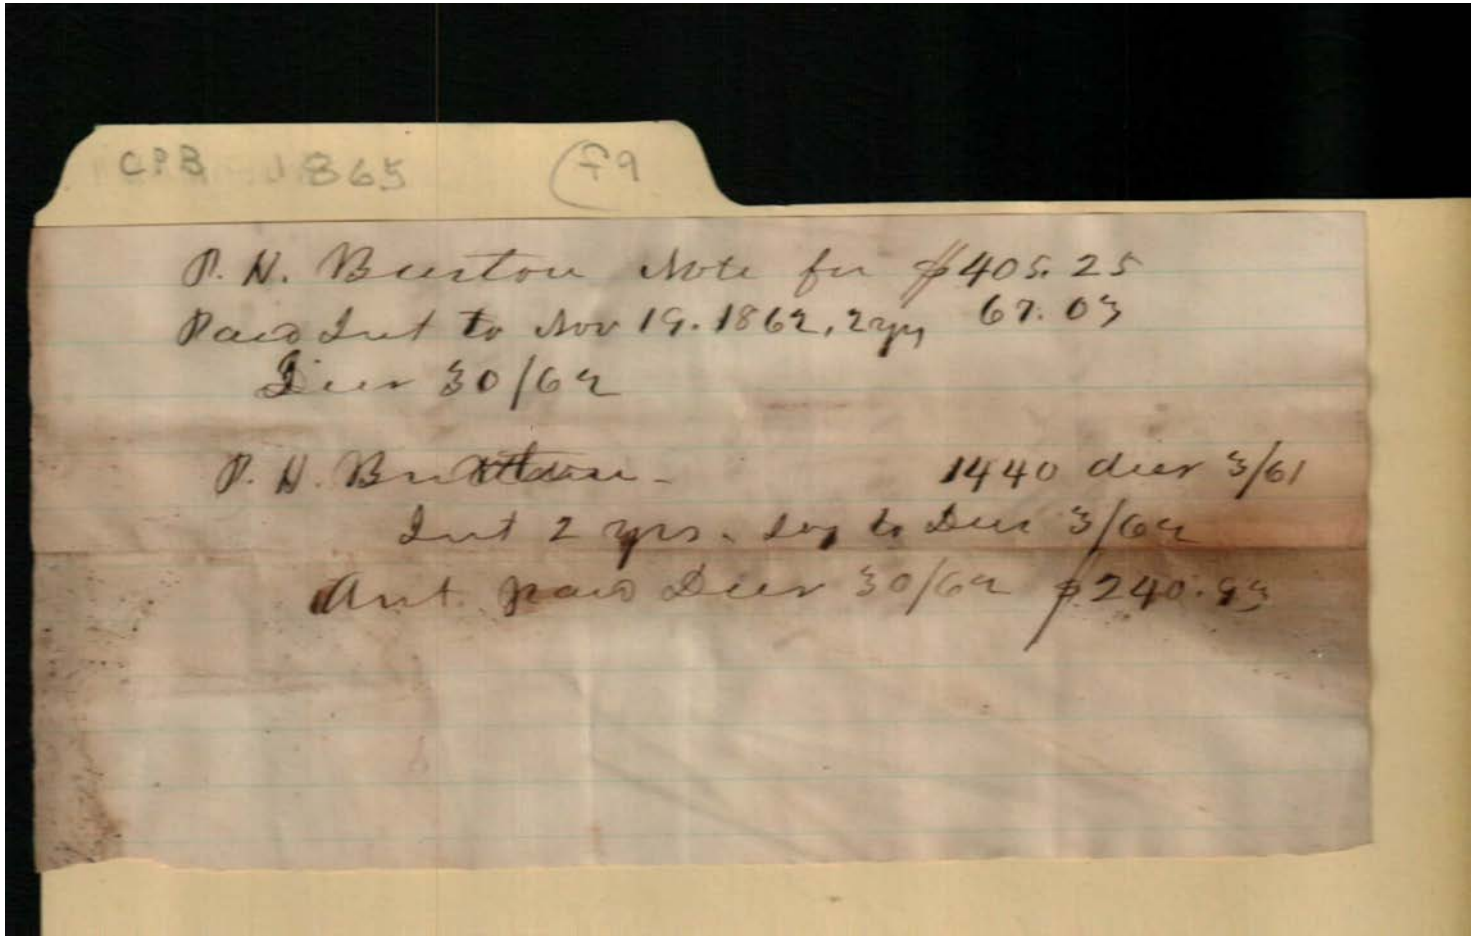 CPB 1865 f9
P. H. Burton Note for $405.25
Paid Int to Nov 19. 1862, 2 yrs 67.03
Decr 30/62
P. H. Burton - 1440 decr 3/61
Int 2 yrs. to Decr 3/62
Amt. paid Decr 30/62 $240.